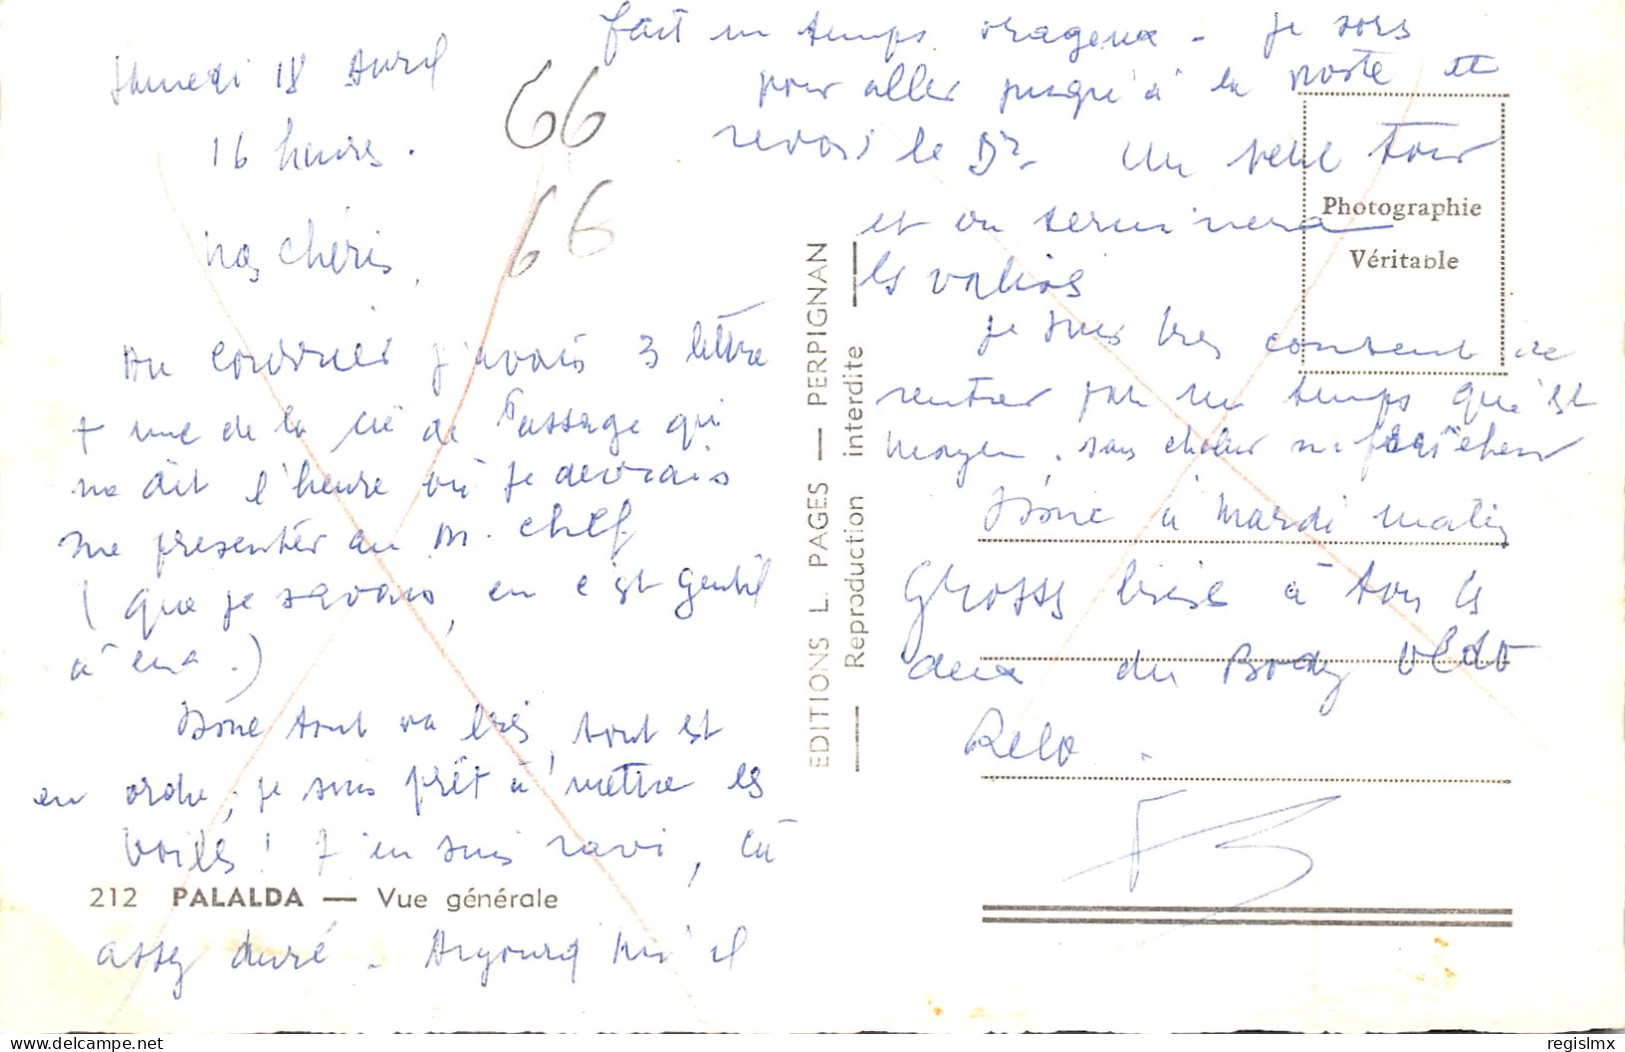 Samedi 18 Avril
16 heures.
66
66
Mes chéris,
Au courrier j'avais 3 lettre
+ une de la Cie de Passage qui
me dit l'heure où je devrais
me présenter au M. Chef
(que je savais, en c'est gentil
à eux.)
Donc tout va bien, tout est
en ordre, je suis prêt à mettre les
voiles! J'en suis ravi, ça
212 PALALDA — Vue générale
assez duré - Aujourd'hui il
fait un temps orageux - Je sors
pour aller jusqu'à la poste et
revoir le Dr. Un petit tour
et on terminera
les valises
Je suis très content de
rentrer par un temps qui est
moyen, sans chaleur ni fraîcheur
Donc à Mardi matin
Grosses bises à tous les
deux du
EDITIONS L. PAGES — PERPIGNAN
Reproduction interdite
Photographie
Véritable